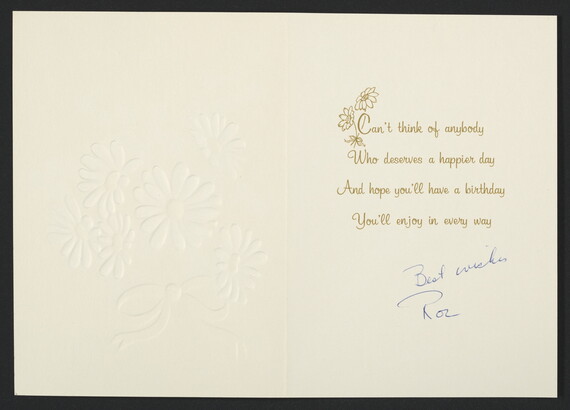 Can't think of anybody
Who deserves a happier day
And hope you'll have a birthday
You'll enjoy in every way
Best wishes
Roz